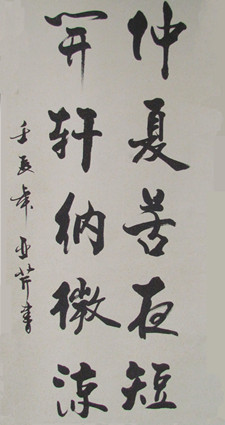 仲夏苦夜短
开轩纳微凉
壬辰年亚芹书